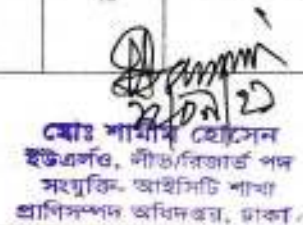 মোঃ শামীম হোসেন
ইউএলও, লীভ/রিজার্ভ পদ
সংযুক্তি- আইসিটি শাখা
প্রাণিসম্পদ অধিদপ্তর, ঢাকা